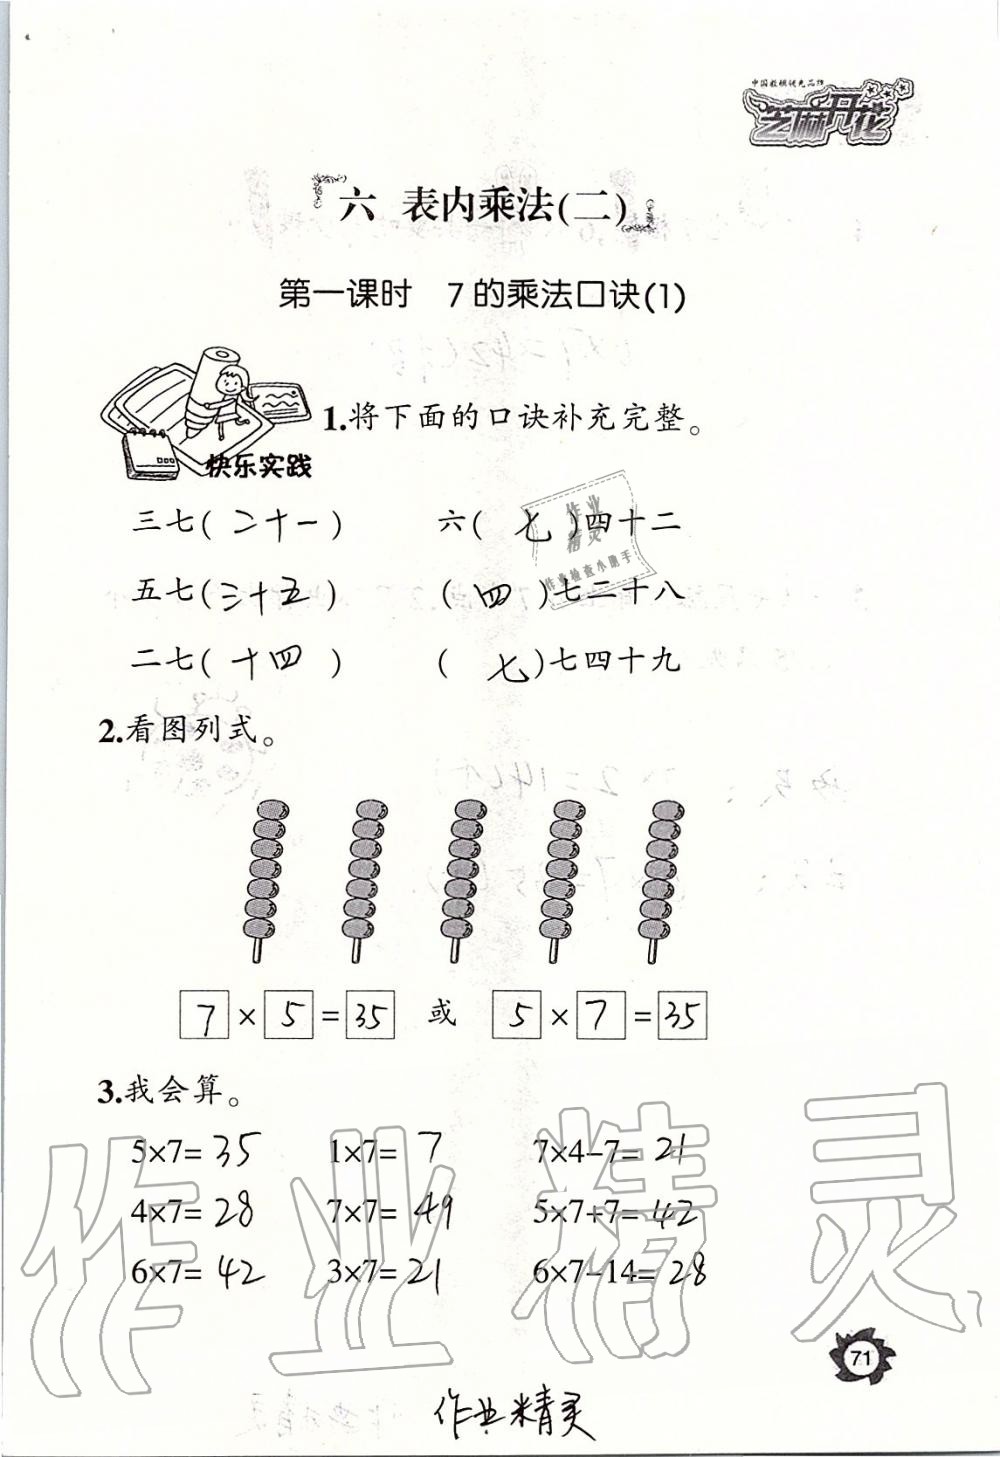 中国教辅领先品牌
芝麻开花
六 表内乘法(二)
第一课时 7的乘法口诀(1)
快乐实践
1.将下面的口诀补充完整。
三七(二十一) 六(七)四十二
五七(三十五) (四)七二十八
二七(十四) (七)七四十九
作业精灵
作业检查小助手
2.看图列式。
7×5=35 或 5×7=35
3.我会算。
5×7=35 1×7=7 7×4-7=21
4×7=28 7×7=49 5×7+7=42
6×7=42 3×7=21 6×7-14=28
作业精灵
71
作业精灵